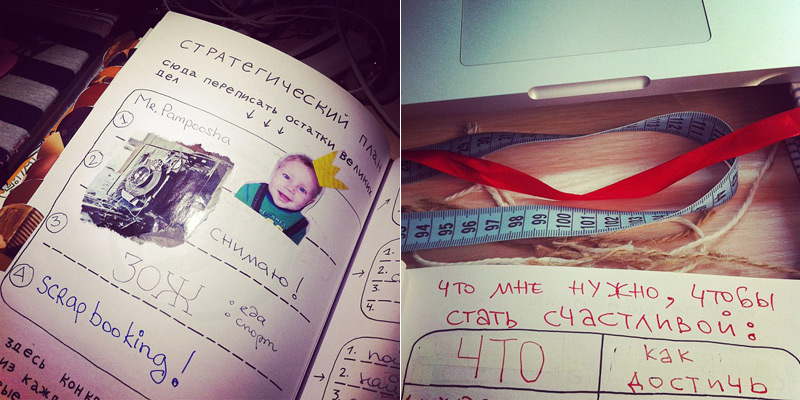 СТРАТЕГИЧЕСКИЙ ПЛАН
сюда переписать остатки великих
дел
1
Mr. Pampoosha
2
СНИМАЮ!
3
ЗОЖ
: еда
: спорт
4
Scrapbooking!
здесь
из
1.
2.
3.
4.
1.
2.
3.
94 95 96 97 98 99 100 101 102
ЧТО МНЕ НУЖНО, ЧТОБЫ
СТАТЬ СЧАСТЛИВОЙ:
ЧТО
КАК
ДОСТИЧЬ